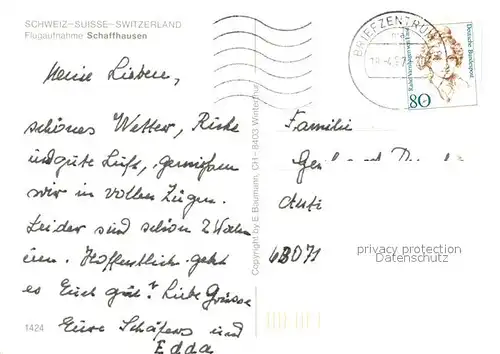 SCHWEIZ–SUISSE–SWITZERLAND
Flugaufnahme Schaffhausen
Meine Lieben,
schönes Wetter, Ruhe
und gute Luft, genießen
wir in vollen Zügen.
Leider sind schon 2 Wochen
um. Hoffentlich geht
es Euch gut? Liebe Grüsse
Eure Schäfers und
Edda
1424
Copyright by E. Baumann, CH – 8403 Winterthur
BRIEFZENTRUM
Deutsche Bundespost
80
Familie
68071
privacy protection
Datenschutz